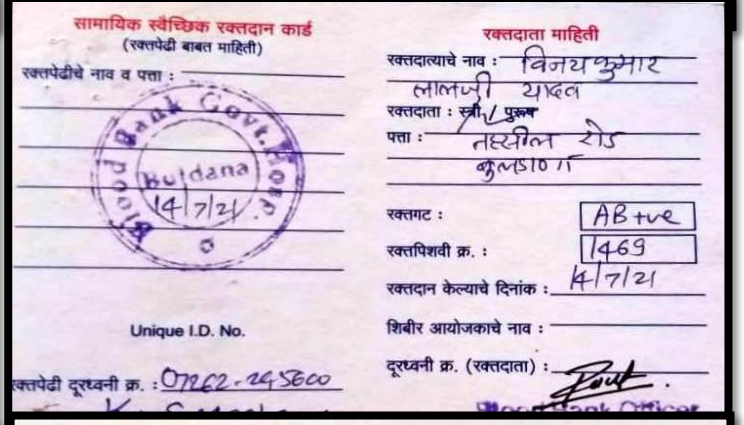 सामायिक स्वैच्छिक रक्तदान कार्ड
(रक्तपेढी बाबत माहिती)
रक्तपेढीचे नाव व पत्ता :
Blood Bank Govt. Hosp.
Buldana
14/7/21
Unique I.D. No.
रक्तपेढी दूरध्वनी क्र. : 07262-245600
रक्तदाता माहिती
रक्तदात्याचे नाव : विनयकुमार
लालजी यादव
रक्तदाता : स्त्री / पुरूष
पत्ता : तहसील रोड
रक्तगट : AB +ve
रक्तपिशवी क्र. : 1469
रक्तदान केल्याचे दिनांक : 14/7/21
शिबीर आयोजकाचे नाव :
दूरध्वनी क्र. (रक्तदाता) :
Blood Bank Officer